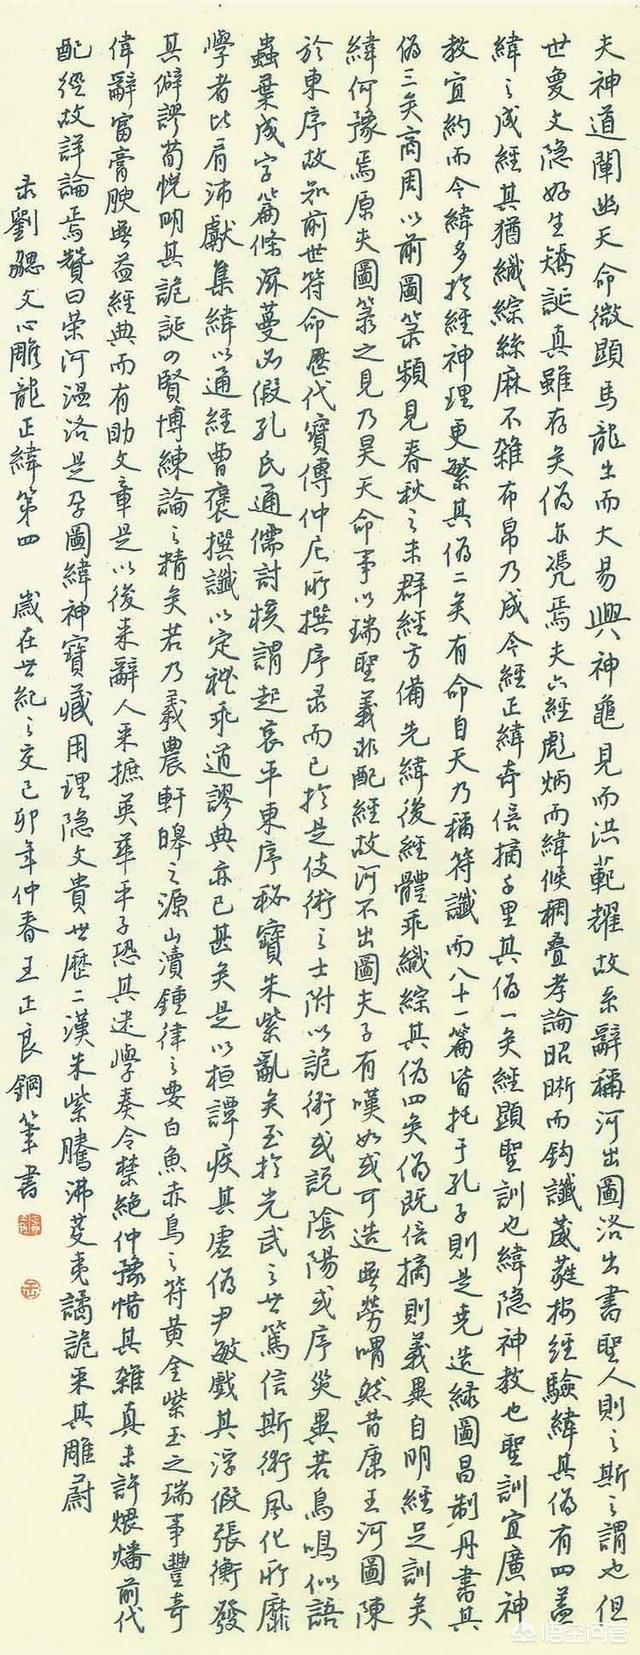 夫神道闡幽天命微顯馬龍出而大易興神龜見而洪範耀故系辭稱河出圖洛出書聖人則之斯之謂也但
世夐文隐好生矯誕真雖存矣偽亦憑焉夫六經彪炳而緯候稠叠孝論昭晰而鈎讖葳蕤按經驗緯其偽有四蓋
緯之成經其猶織綜絲麻不雜布帛乃成今經正緯奇倍摘千里其偽一矣經顯聖訓也緯隐神教也聖訓宜廣神
教宜約而今緯多於經神理更繁其偽二矣有命自天乃稱符讖而八十一篇皆托于孔子則是堯造緑圖昌制丹書其
偽三矣商周以前圖箓頻見春秋之末群經方備先緯後經體乖織綜其偽四矣偽既倍摘則義異自明經足訓矣
緯何豫焉原夫圖箓之見乃昊天命事以瑞聖義非配經故河不出圖夫子有嘆如或可造無勞喟然昔康王河圖陳
於東序故知前世符命歷代寶傳仲尼所撰序录而已於是伎術之士附以詭術或説陰陽或序災異若鳥鳴似語
蟲葉成字篇條滋蔓必假孔氏通儒討核謂起哀平東序秘寶朱紫亂矣至於光武之世篤信斯術風化所靡
學者比肩沛獻集緯以通經曹褒撰讖以定禮乖道謬典亦已甚矣是以桓譚疾其虚偽尹敏戲其浮假張衡發
其僻謬荀悦明其詭誕四賢博練論之精矣若乃羲農軒皞之源山瀆鍾律之要白魚赤烏之符黄金紫玉之瑞事豐奇
偉辭富膏腴無益經典而有助文章是以後來辭人采摭英華平子恐其迷學奏令禁絶仲豫惜其雜真未許煨燔前代
配經故詳論焉贊曰榮河温洛是孕圖緯神寶藏用理隐文貴世歷二漢朱紫騰沸芟夷譎詭采其雕蔚
录劉勰文心雕龍正緯第四 歲在世紀之交己卯年仲春王正良鋼筆書
悟空问答